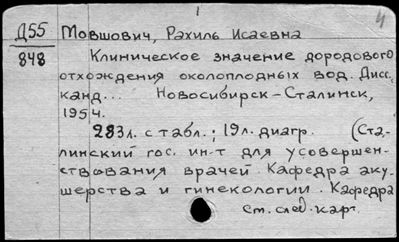 1
4
Д55 Мовшович, Рахиль Исаевна
848 Клиническое значение дородового
отхождения околоплодных вод. Дисс.
канд... Новосибирск-Сталинск,
1954.
283л. с табл.; 19л. диагр. (Ста-
линский гос. ин-т для усовершен-
ствования врачей. Кафедра аку-
шерства и гинекологии. Кафедра
См. след. карт.